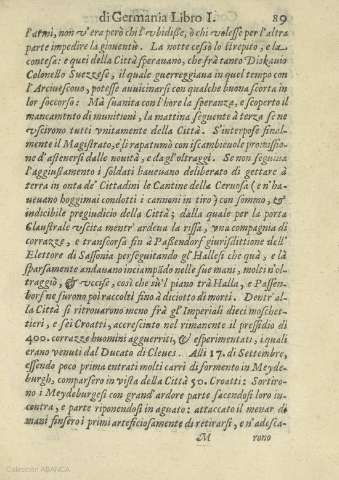 di Germania Libro I. 89
l'armi, non v'era però chi l'vbidisse, ò chi volesse per l'altra
parte impedire la giouentù. La notte cessò lo strepito, e la
contesa: e quei della Città sperauano, che frà tanto Diskauio
Colonello Suezzese, il quale guerreggiaua in quel tempo con
l'Arciuescouo, potesse auuicinarsi con qualche buona scorta in
lor soccorso: Mà suanita con l'hore la speranza, e scoperto il
mancamento di munitioni, la mattina seguente à terza se ne
vscirono tutti vnitamente della Città. S'interpose final-
mente il Magistrato, e si rapatumò con iscambieuole promissio-
no d'astenersi dalle nouità, e dagl'oltraggi. Se non seguiua
l'aggiustamento i soldati haueuano deliberato di gettare à
terra in onta de' Cittadini le Cantine della Ceruosa (e n'ha-
ueuano hoggimai condotti i cannoni in tiro) con sommo, &
indicibile pregiudicio della Città; dalla quale per la porta
Claustrale vscita mentr' ardeua la rissa, vna compagnia di
corrazze, e transcorsa fin à Passendorf giurisdittione dell'
Elettore di Sassonia perseguitando gl'Hallesi che quà, e là
sparsamente andauano inciampãdo nelle sue mani, molti n'ol-
traggiò, & vccise, così che sù'l piano trà Halla, e Passen-
dorf ne furono poi raccolti fino à diciotto di morti. Dentr' al-
la Città si ritrouarono meno frà gl'Imperiali dieci moschet-
tieri, e sei Croatti, accresciuto nel rimanente il pressidio di
400. corrazze huomini agguerriti, & esperimentati, i quali
erano venuti dal Ducato di Cleues. Alli 17. di Settembre,
essendo poco prima entrati molti carri di formento in Meyde-
burgh, comparsero in vista della Città 50. Croatti: Sortiro-
no i Meydeburgesi con grand'ardore parte facendosi loro in-
contra, e parte riponendosi in aguato: attaccato il menar di
mani finsero i primi arteficiosamente di retirarsi, e n'adesca-
M rono
Colección ABANCA